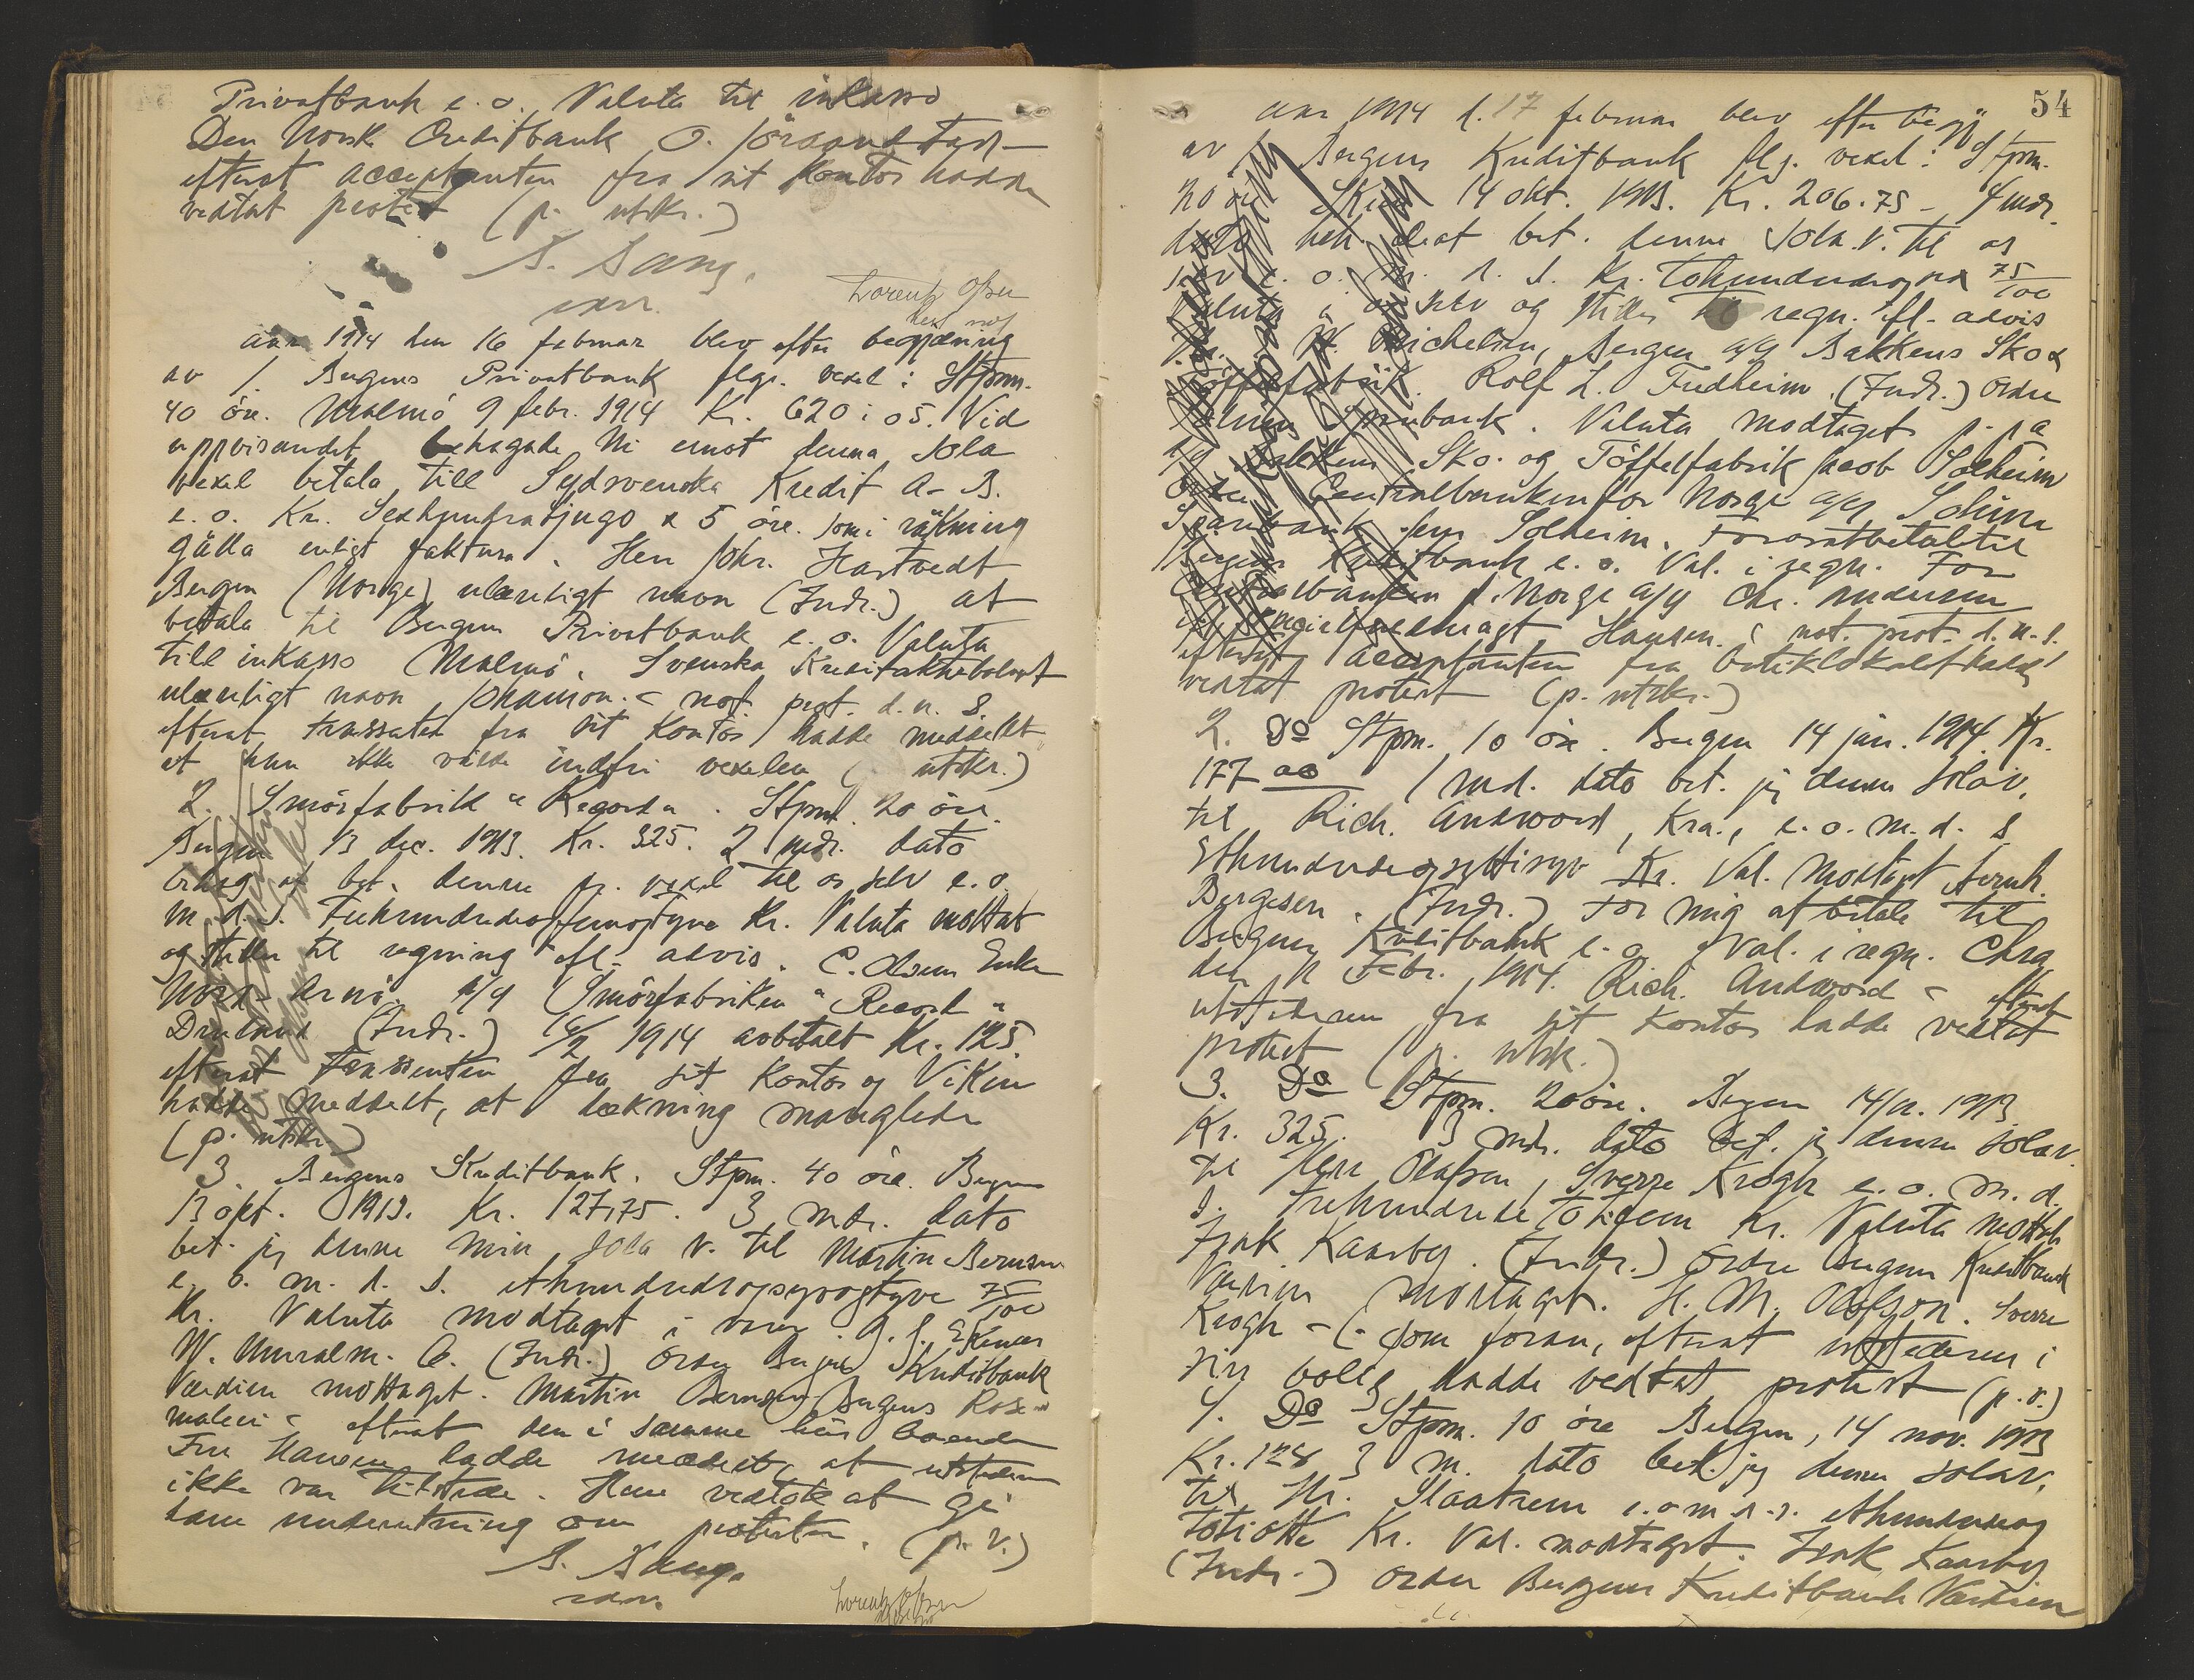 Privatbank e. o. Valuta til inkasso
Den Norske Creditbank O.
efterat acceptanten fra sit kontor hadde
vedtat protest (p. utskr.)
S. Sang.
Lorentz Olsen
aar 1914 den 16 februar blev efter begjæring
av 1. Bergens Privatbank flg. vexel: Stpm.
40 öre. Malmö 9 febr. 1914 Kr. 620:05. Vid
uppvisandet behagade Ni emot denna Sola
vexel betala till Sydsvenska Kredit A-B.
e. o. Kr. Sexhundratjugo & 5 öre. som i räkning
gälla enligt faktura. Herr Johs. Hartvedt
Bergen (Norge) ulæseligt navn (Indr.) at
betala til Bergens Privatbank e. o. Valuta
till inkasso Malmö. Svenska Kreditaktiebolaget
ulæseligt navn Johanson. - not. prot. d. n. s.
efterat trassaten fra sit kontor hadde meddelt
at han ikke vilde indfri vexelen (p. utskr.)
2. Smörfabrik "Record". Stpm. 20 öre.
Bergen 13 dec. 1913. Kr. 325. 2 mdr. dato
behag at bet. denne pr. vexel til os selv e. o.
m. d. s. Trehundredeogfemogtyve Kr. Valuta mottat
og stilles til regning efl. advis. C. Olsens Enke
Nord Arnö. A/S Smörfabriken "Record"
(Indr.) 16/2 1914 avbetalt Kr. 125.
efterat trassenten fra sit kontor og Viken
hadde meddelt, at dækning manglede
(p. utskr.)
3. Bergens Kreditbank. Stpm. 40 öre. Bergen
13 okt. 1913. Kr. 127,75. 3 mdr. dato
bet. jeg denne min sola v. til Martin Bernsen
e. o. m. d. s. ethundredeogsyvogtyve 75/100
Kr. Valuta modtaget i varer.
W. (Indr.) Ordre Bergens Kreditbank
Værdien mottaget. Martin Bernsen Bergens Rose-
maleri - efterat den i samme hus boende
Fru Hansen hadde meddelt, at utstederen
ikke var tilstede. Hun vedtok at gi
ham underretning om protesten. (p. v.)
S. Sang.
Lorentz Olsen
54
aar 1914 d. 17 februar blev efter begjg
av 1. Bergens Kreditbank flg. vexel: Stpm.
20 öre Skien 14 okt. 1913. Kr. 206.75 - 4 mdr.
dato behag at bet. denne Sola.v. til os
selv e. o. m. d. s. Kr. Tohundredeogsex 75/100
Valuta i os selv og stilles til regn. efl. advis
Michelsen, Bergen A/S Bakkens Sko &
Töffelfabrik. Rolf L. Fredheim. (Indr.) Ordre
Solum Sparebank. Valuta modtaget p. pa
A/S Bakkens Sko- og Töffelfabrik Jacob Solheim
Ordre Centralbanken for Norge A/S Solum
Sparebank Solheim. For os at betale til
Bergens Kreditbank e. o. Val. i regn. For
Centralbanken f. Norge A/S Chr. Andersen
Hansen. - not. prot. d. n. s.
efterat acceptanten fra butiklokalet hadde
vedtat protest (p. utskr.)
2. Do Stpm. 10 öre. Bergen 14 jan. 1914. Kr.
177 00 1 md. dato bet. jeg denne solav.
til Rich. Andvord, Kra., e. o. m. d. s
Ethundredeogsyttisyv Kr. Val. Modtaget Bernh.
Bergesen. (Indr.) For mig at betale til
Bergens Kreditbank e. o. Val. i regn. Chra
den 12 Febr. 1914. Rich. Andvord - efterat
utstederen fra sit kontor hadde vedtat
protest (p. utsk.)
3. Do Stpm. 20 öre. Bergen 14/11. 1913
Kr. 325. 3 mdr. dato bet. jeg denne solav.
til Herr Olafson, Sverre Krogh e. o. m. d.
s. Trehundrede To ti fem Kr. Valuta mottat
Isak Kaarby. (Indr.) Ordre Bergens Kreditbank
Værdien Mottaget. H. M. Olafson. Sverre
Krogh - (- som foran, efterat utstederen i
sin bolig hadde vedtat protest (p. v.)
4. Do Stpm. 10 öre Bergen, 14 nov. 1913
Kr. 128 3 m. dato bet. jeg denne solav.
til Hr. Slaatrem e. o. m. d. s. ethundreog
totiotte Kr. Val. modtaget. Isak Kaarby
(Indr.) Ordre Bergens Kreditbank Værdien